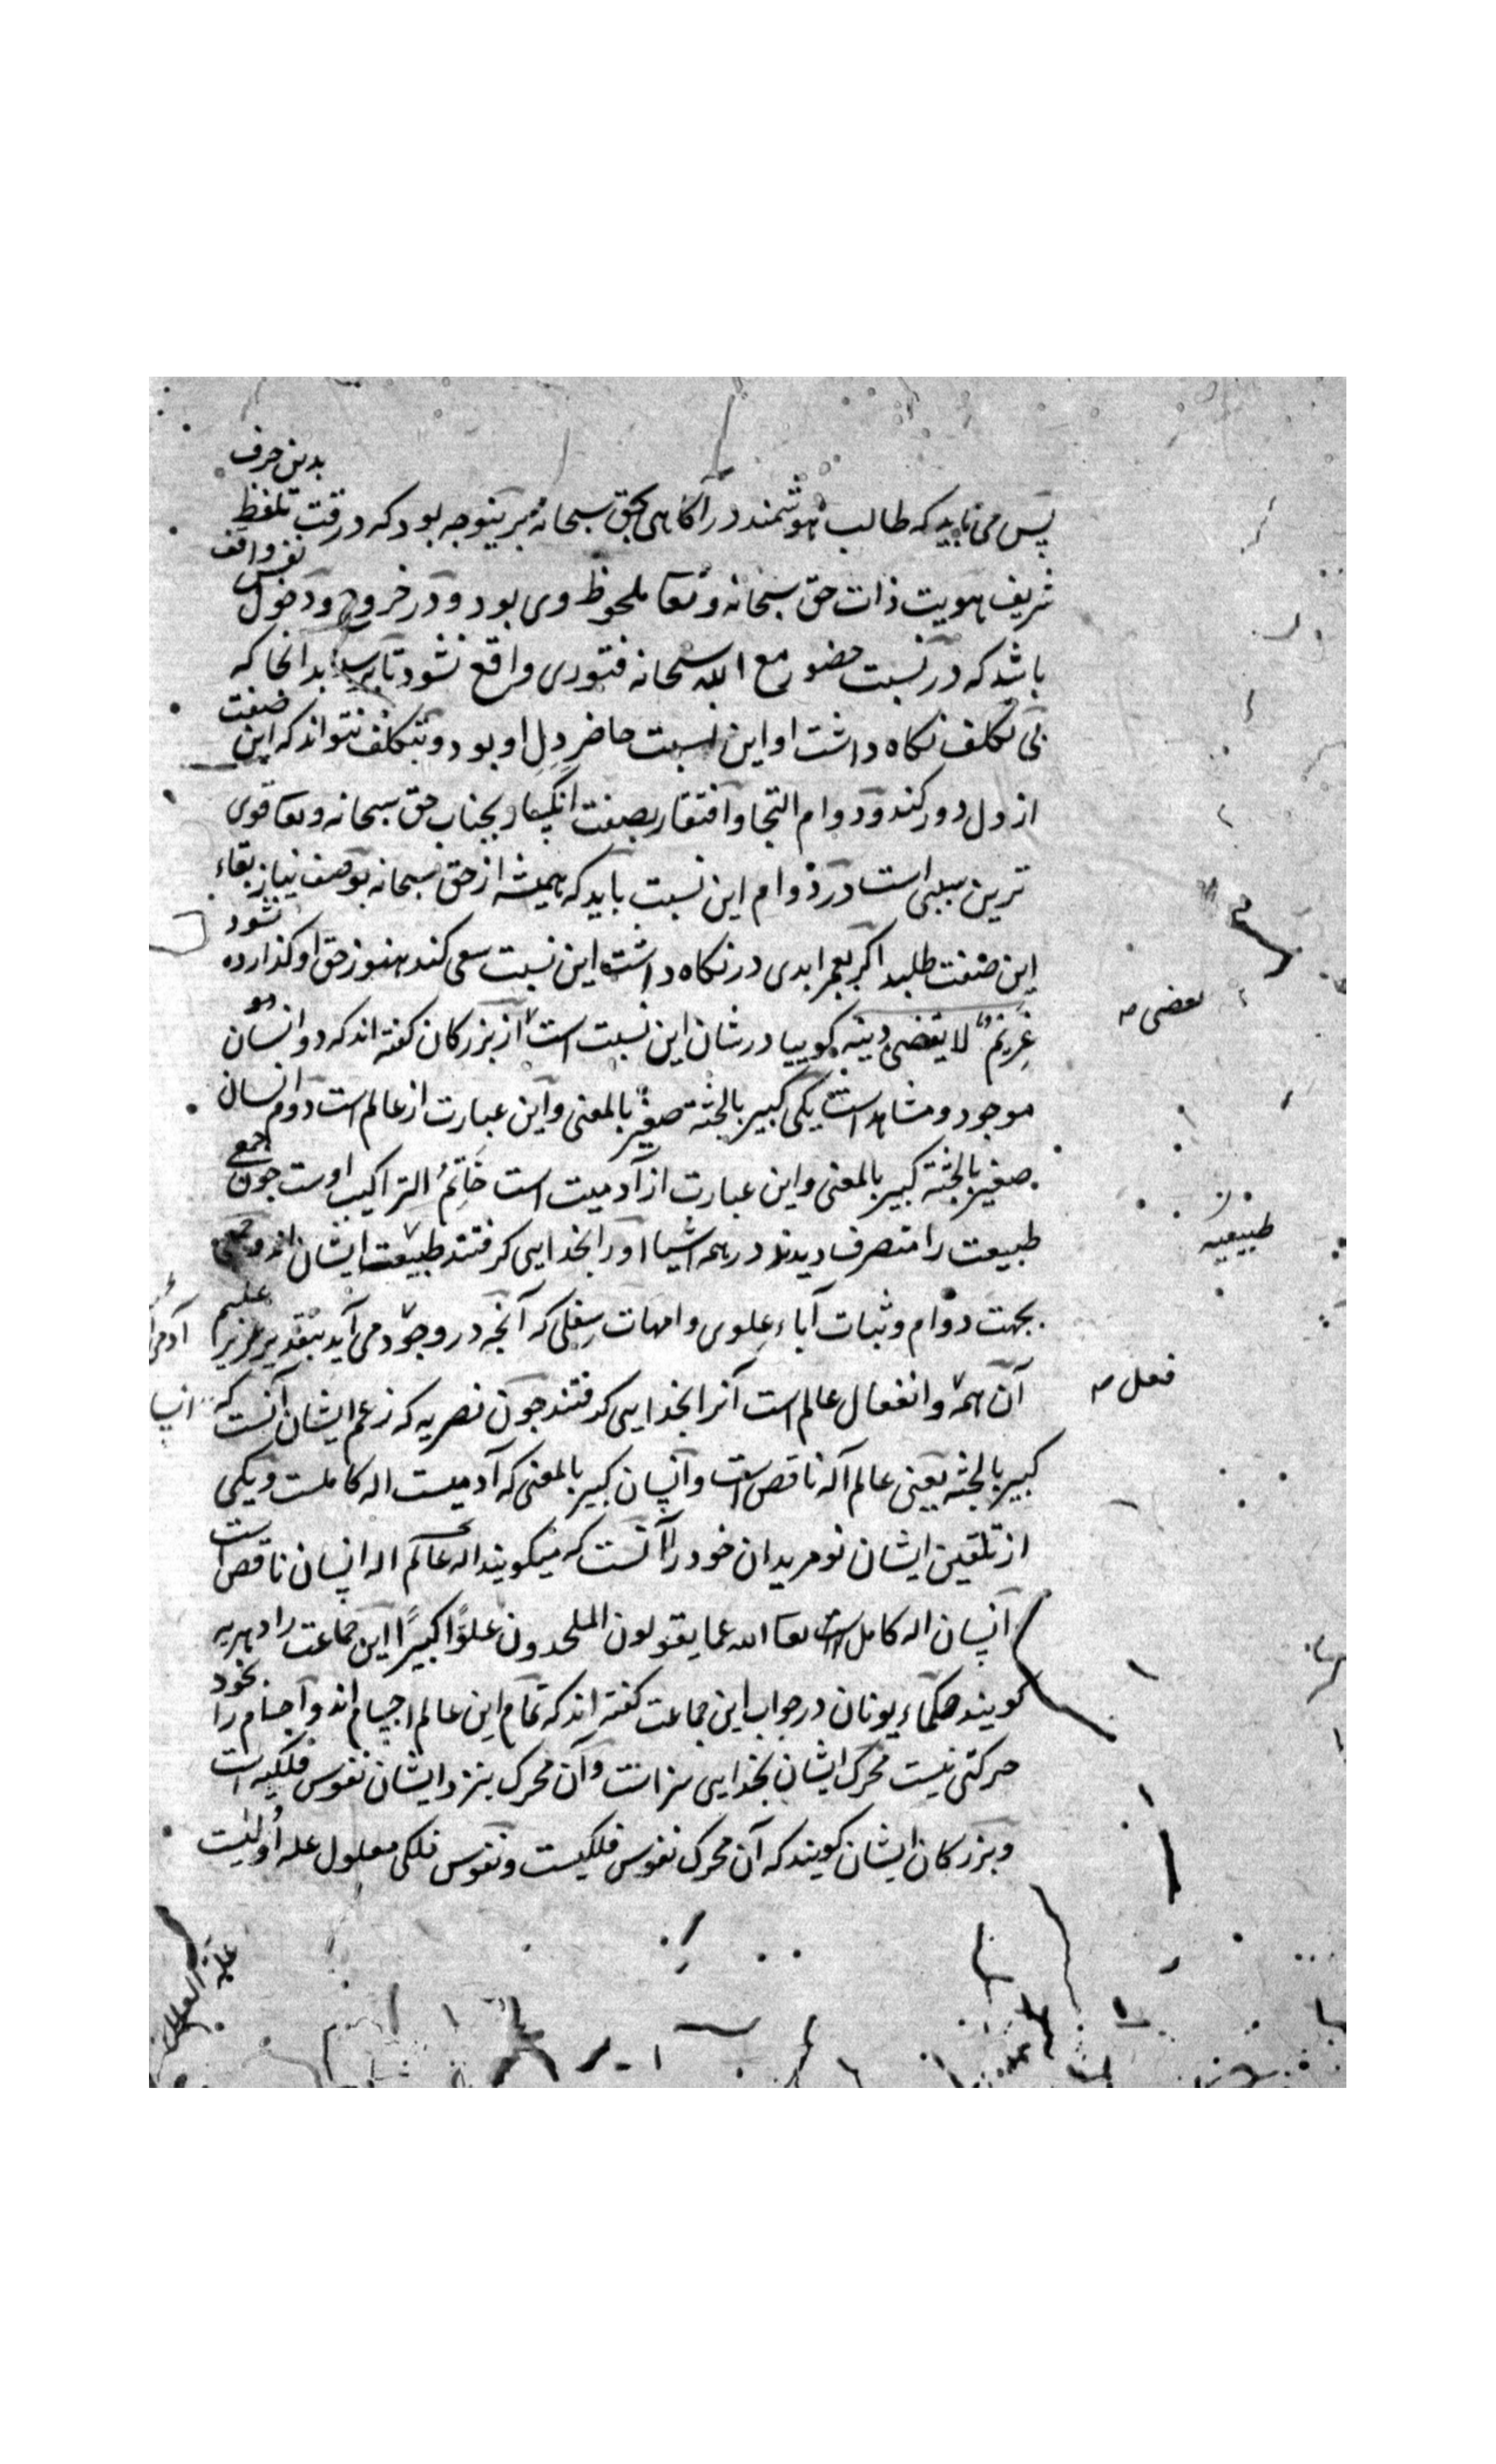 پس می باید که طالب هوشمند در آکاهی بحق سبحانه برینوجه بود که در وقت تلفظ بدین حرف
شریف هویت ذات حق سبحانه و تعا ملحوظ وی بود و در خروج و دخول نفس واقف
باشد که در نسبت حضور مع الله سبحانه فتوری واقع نشود تا برسد بدانجا که
بی تکلف نکاه داشت او این نسبت حاضر دل او بود و بتکلف نتواند که این صفت
از دل دور کند و دوام التجا و افتقار بصفت انکسار بجناب حق سبحانه و تعا قوی
ترین سببی است در دوام این نسبت باید که همیشه از حق سبحانه بوصف نیاز بقاء
این صفت طلبد اکر بعمر ابدی در نکاه داشت این نسبت سعی کند هنوز حق او کذارده نشود
غریم لا یقضی دینه کوییا در شان این نسبت است از بزرکان کفته اند که دو انسان
بعضی
موجود و مشاهد است یکی کبیر بالجثه صغیر بالمعنی و این عبارت از عالم است دوم انسان
صغیر بالجثه کبیر بالمعنی و این عبارت از آدمیت است خاتم التراکیب اوست جون جمعی
طبیعت را متصرف دیدند در همه اشیا او را بخدایی کرفتند طبیعت ایشان اند و جمعی
طبیعیه
بجهت دوام و ثبات آباء علوی و امهات سفلی که آنجه در وجود می آید بتقدیر عزیز علیم
آن همه و انفعال عالم است آنرا بخدایی کرفتند جون نصریه که زعم ایشان آنست که
فعل
کبیر بالجثه یعنی عالم آله ناقص است و انسان کبیر بالمعنی که آدمیست اله کاملست و یکی
از تلقین ایشان نو مریدان خود را آنست که میکویند اله عالم اله انسان ناقص است
انسان اله کامل است تعا الله عما یقولون الملحدون علوا کبیرا این جماعت را دهریه
کویند حکماء یونان در جواب این جماعت کفته اند که تمام این عالم اجسام اند و اجسام را بخود
حرکتی نیست محرک ایشان بخدایی سزاست و آن محرک بنزد ایشان نفوس فلکیه است
و بزرکان ایشان کویند که آن محرک نفوس فلکیست و نفوس فلکی معلول عله اولیست
علة العلل